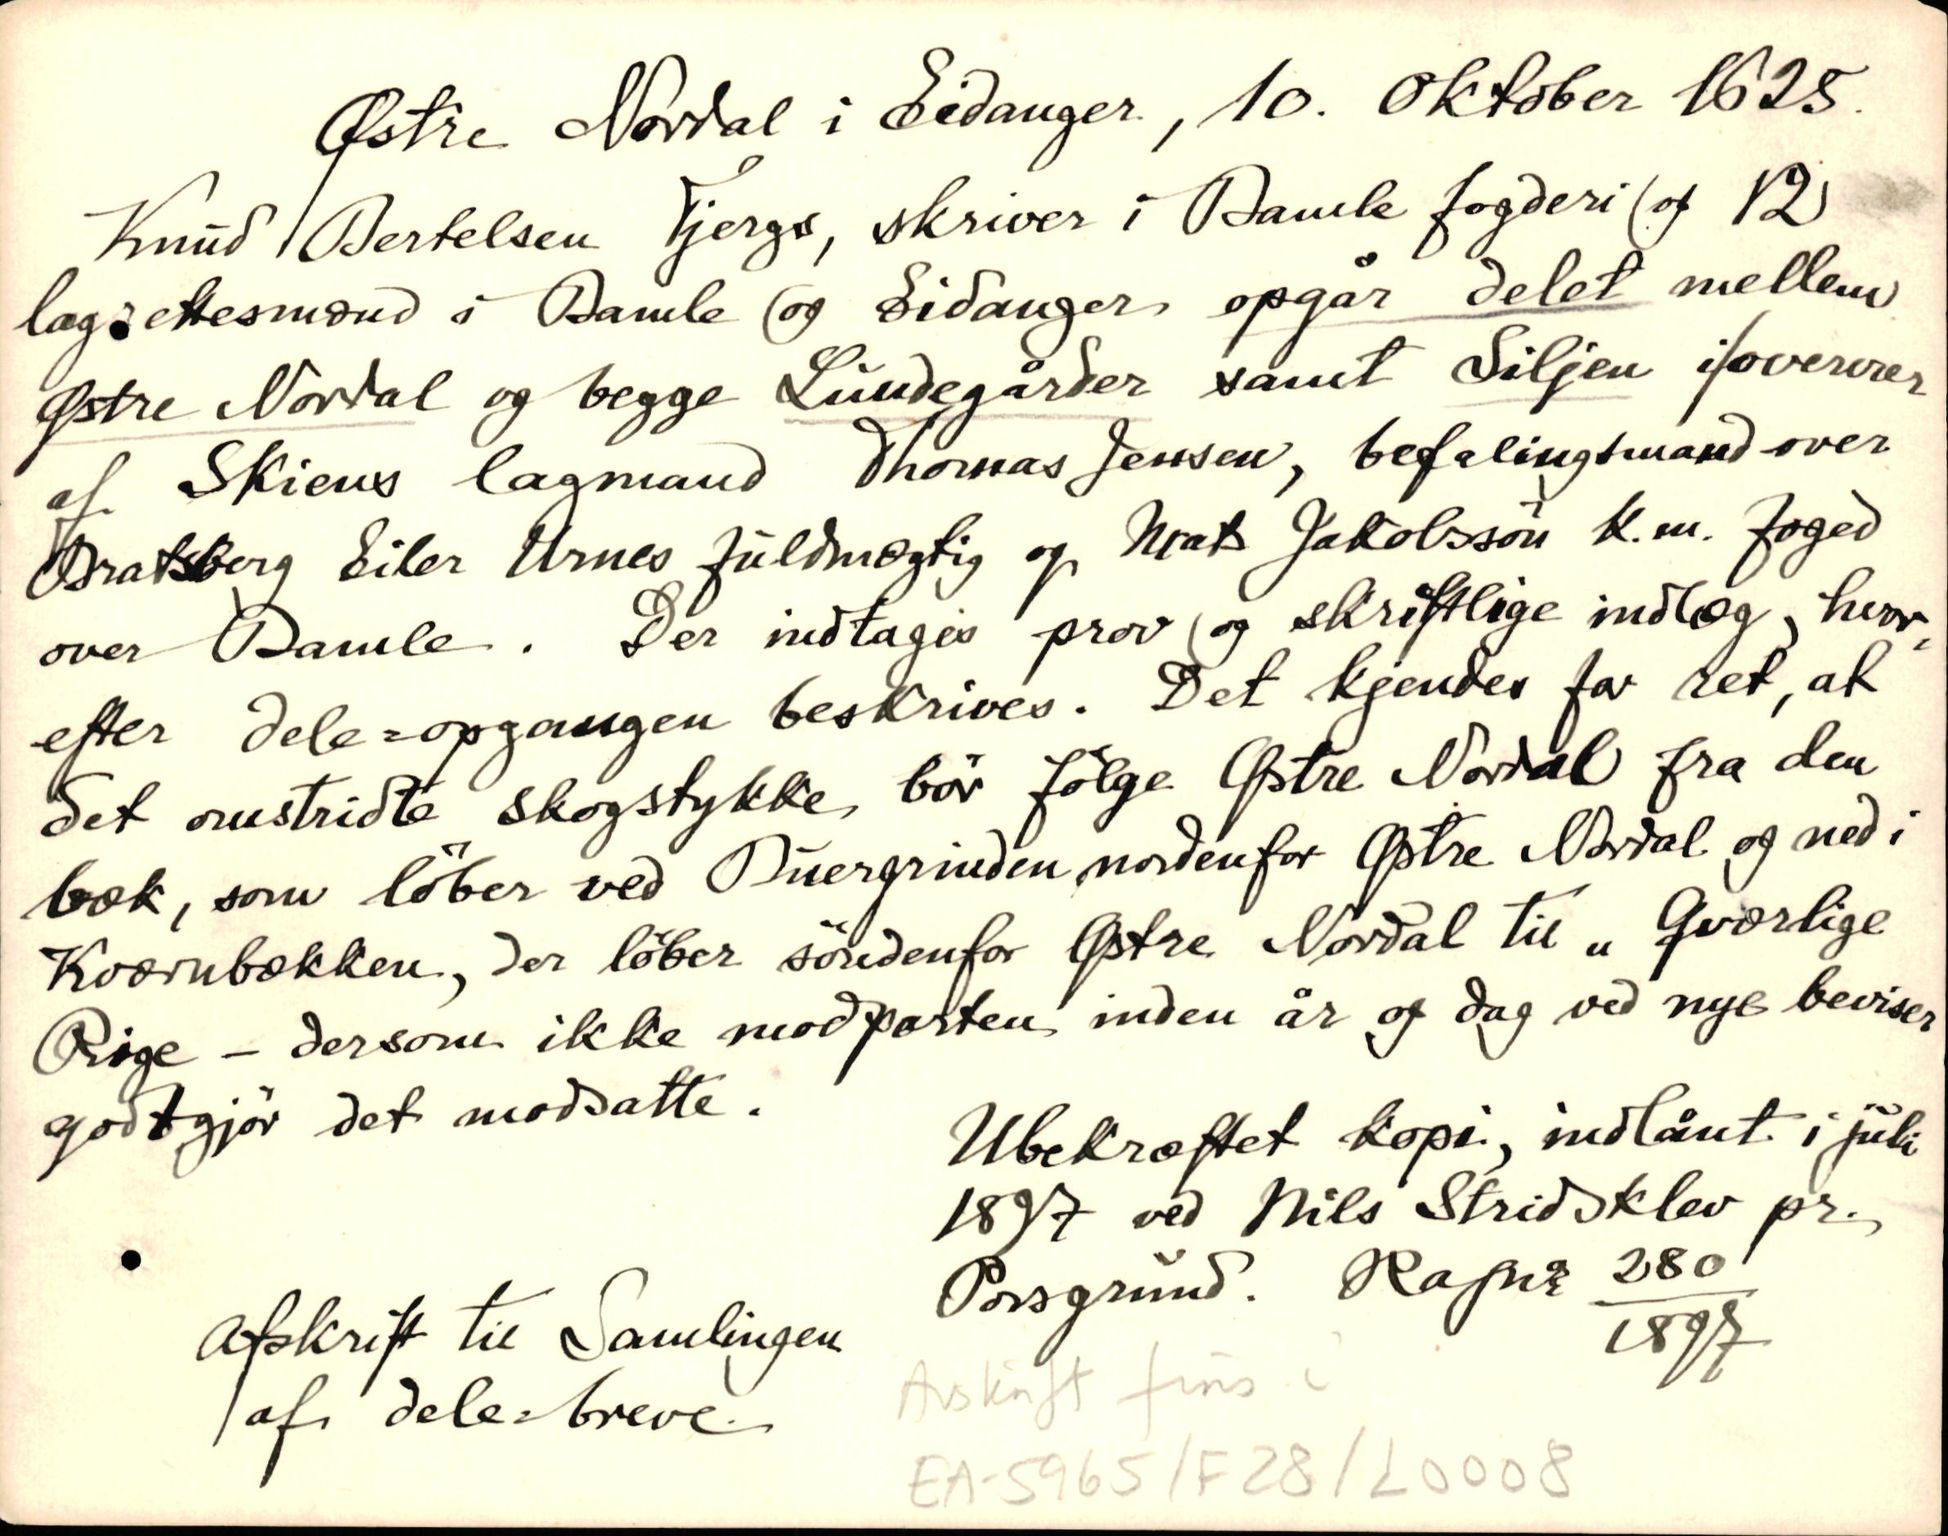 Østre Nordal i Eidanger, 10. Oktober 1625.
Knud Bertelsen Fjergs, skriver i Bamle fogderi og 12
lagrettesmænd i Bamle og Eidanger opgår delet mellem
Østre Nordal og begge Lundegårder samt Siljen i overvær
af Skiens lagmand Thomas Jensen, befalingsmand over
Bratsberg Eiler Urnes fuldmægtig og Mats Jakobssön k. m. foged
over Bamle. Der indtages prov og skriftlige indlæg, hvor-
efter dele-opgangen beskrives. Det kjendes for ret, at
det omstridte skogstykke bör fölge Østre Nordal fra den
bæk, som löber ved Buergrinden nordenfor Østre Nordal og ned i
Kværnbækken, der löber söndenfor Østre Nordal til „Gværlige
Rige – dersom ikke modparten inden år og dag ved nye beviser
godtgjör det modsatte.
Ubekræftet kopi, indlånt i juli
1897 ved Nils Stridsklev pr.
Porsgrund. Rafn 280/1897
Afskrift til Samlingen
af dele-breve.
Avskrift fins i
EA-5965/F28/L0008